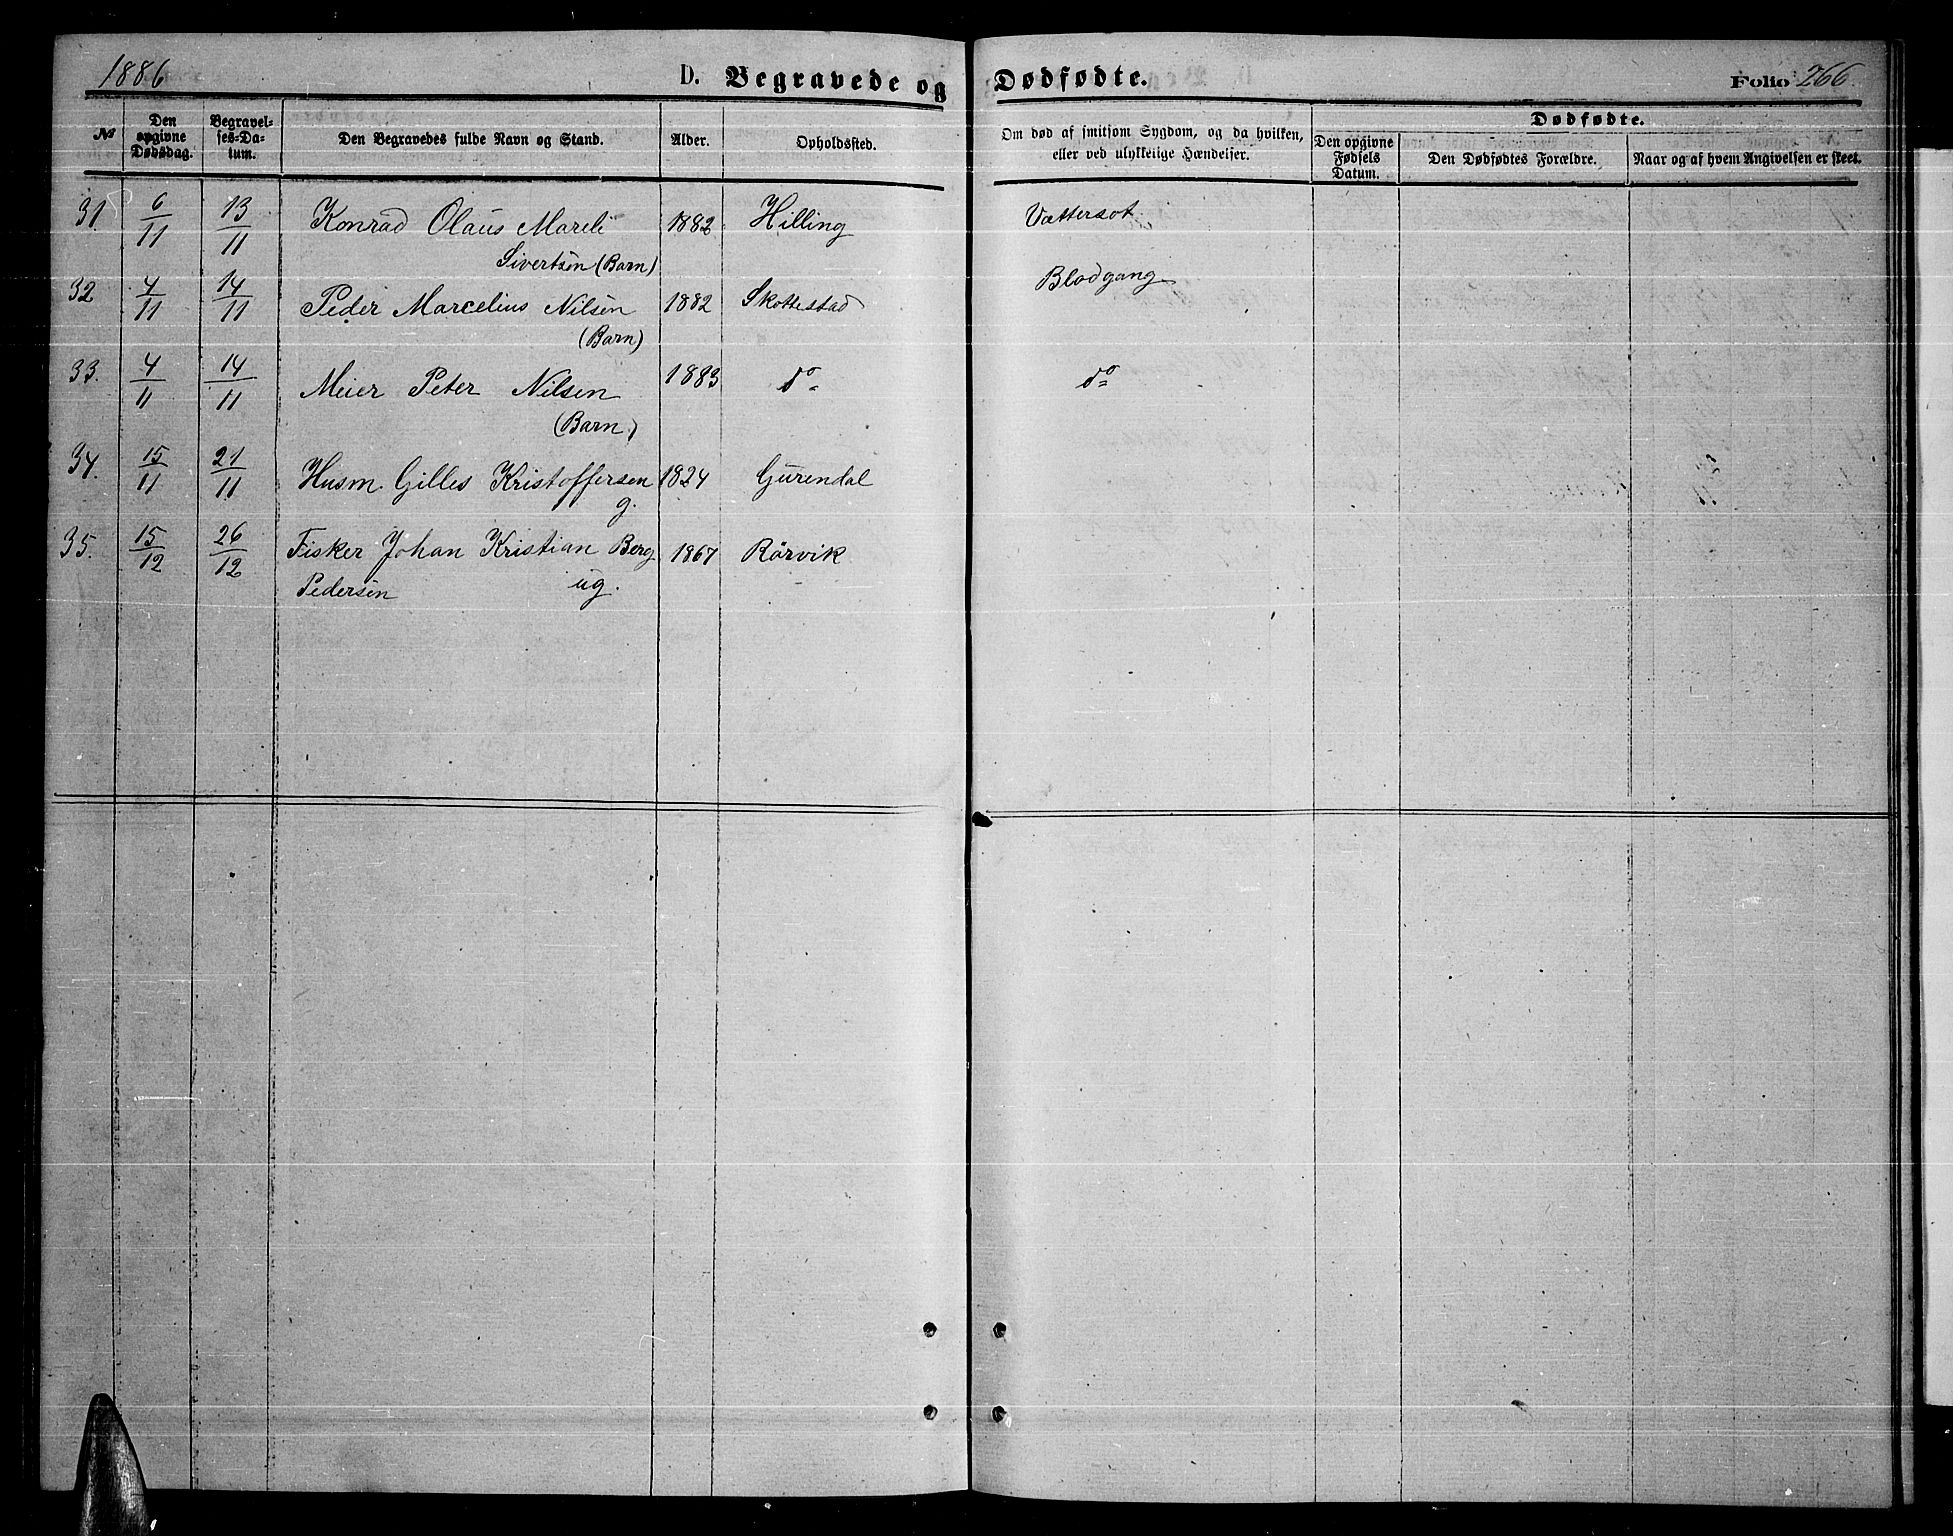 1886 D. Begravede og Dødfødte. Folio 266.
№ Den opgivne Dødsdag. Begravelses-Datum. Den Begravedes fulde Navn og Stand. Alder. Opholdssted. Om død af smitsom Sygdom, og da hvilken, eller ved ulykkelige Hændelser. Dødfødte.
Den opgivne Fødsels Datum. Den Dødfødtes Forældre. Naar og af hvem Angivelsen er skeet.
31. 6/11 13/11 Konrad Olaus Mareli 1882 Hilling Vattersot
Sivertsen (Barn)
32 4/11 14/11 Peder Marcelius Nilsen 1882 Skottestad Blodgang
(Barn)
33. 4/11 14/11 Meier Peter Nilsen 1883 do do
(Barn)
34. 15/11 21/11 Husm. Gilles Kristoffersen 1824 Gurendal
g.
35. 15/12 26/12 Fisker Johan Kristian Berg 1867 Rörvik
Pedersen ug.